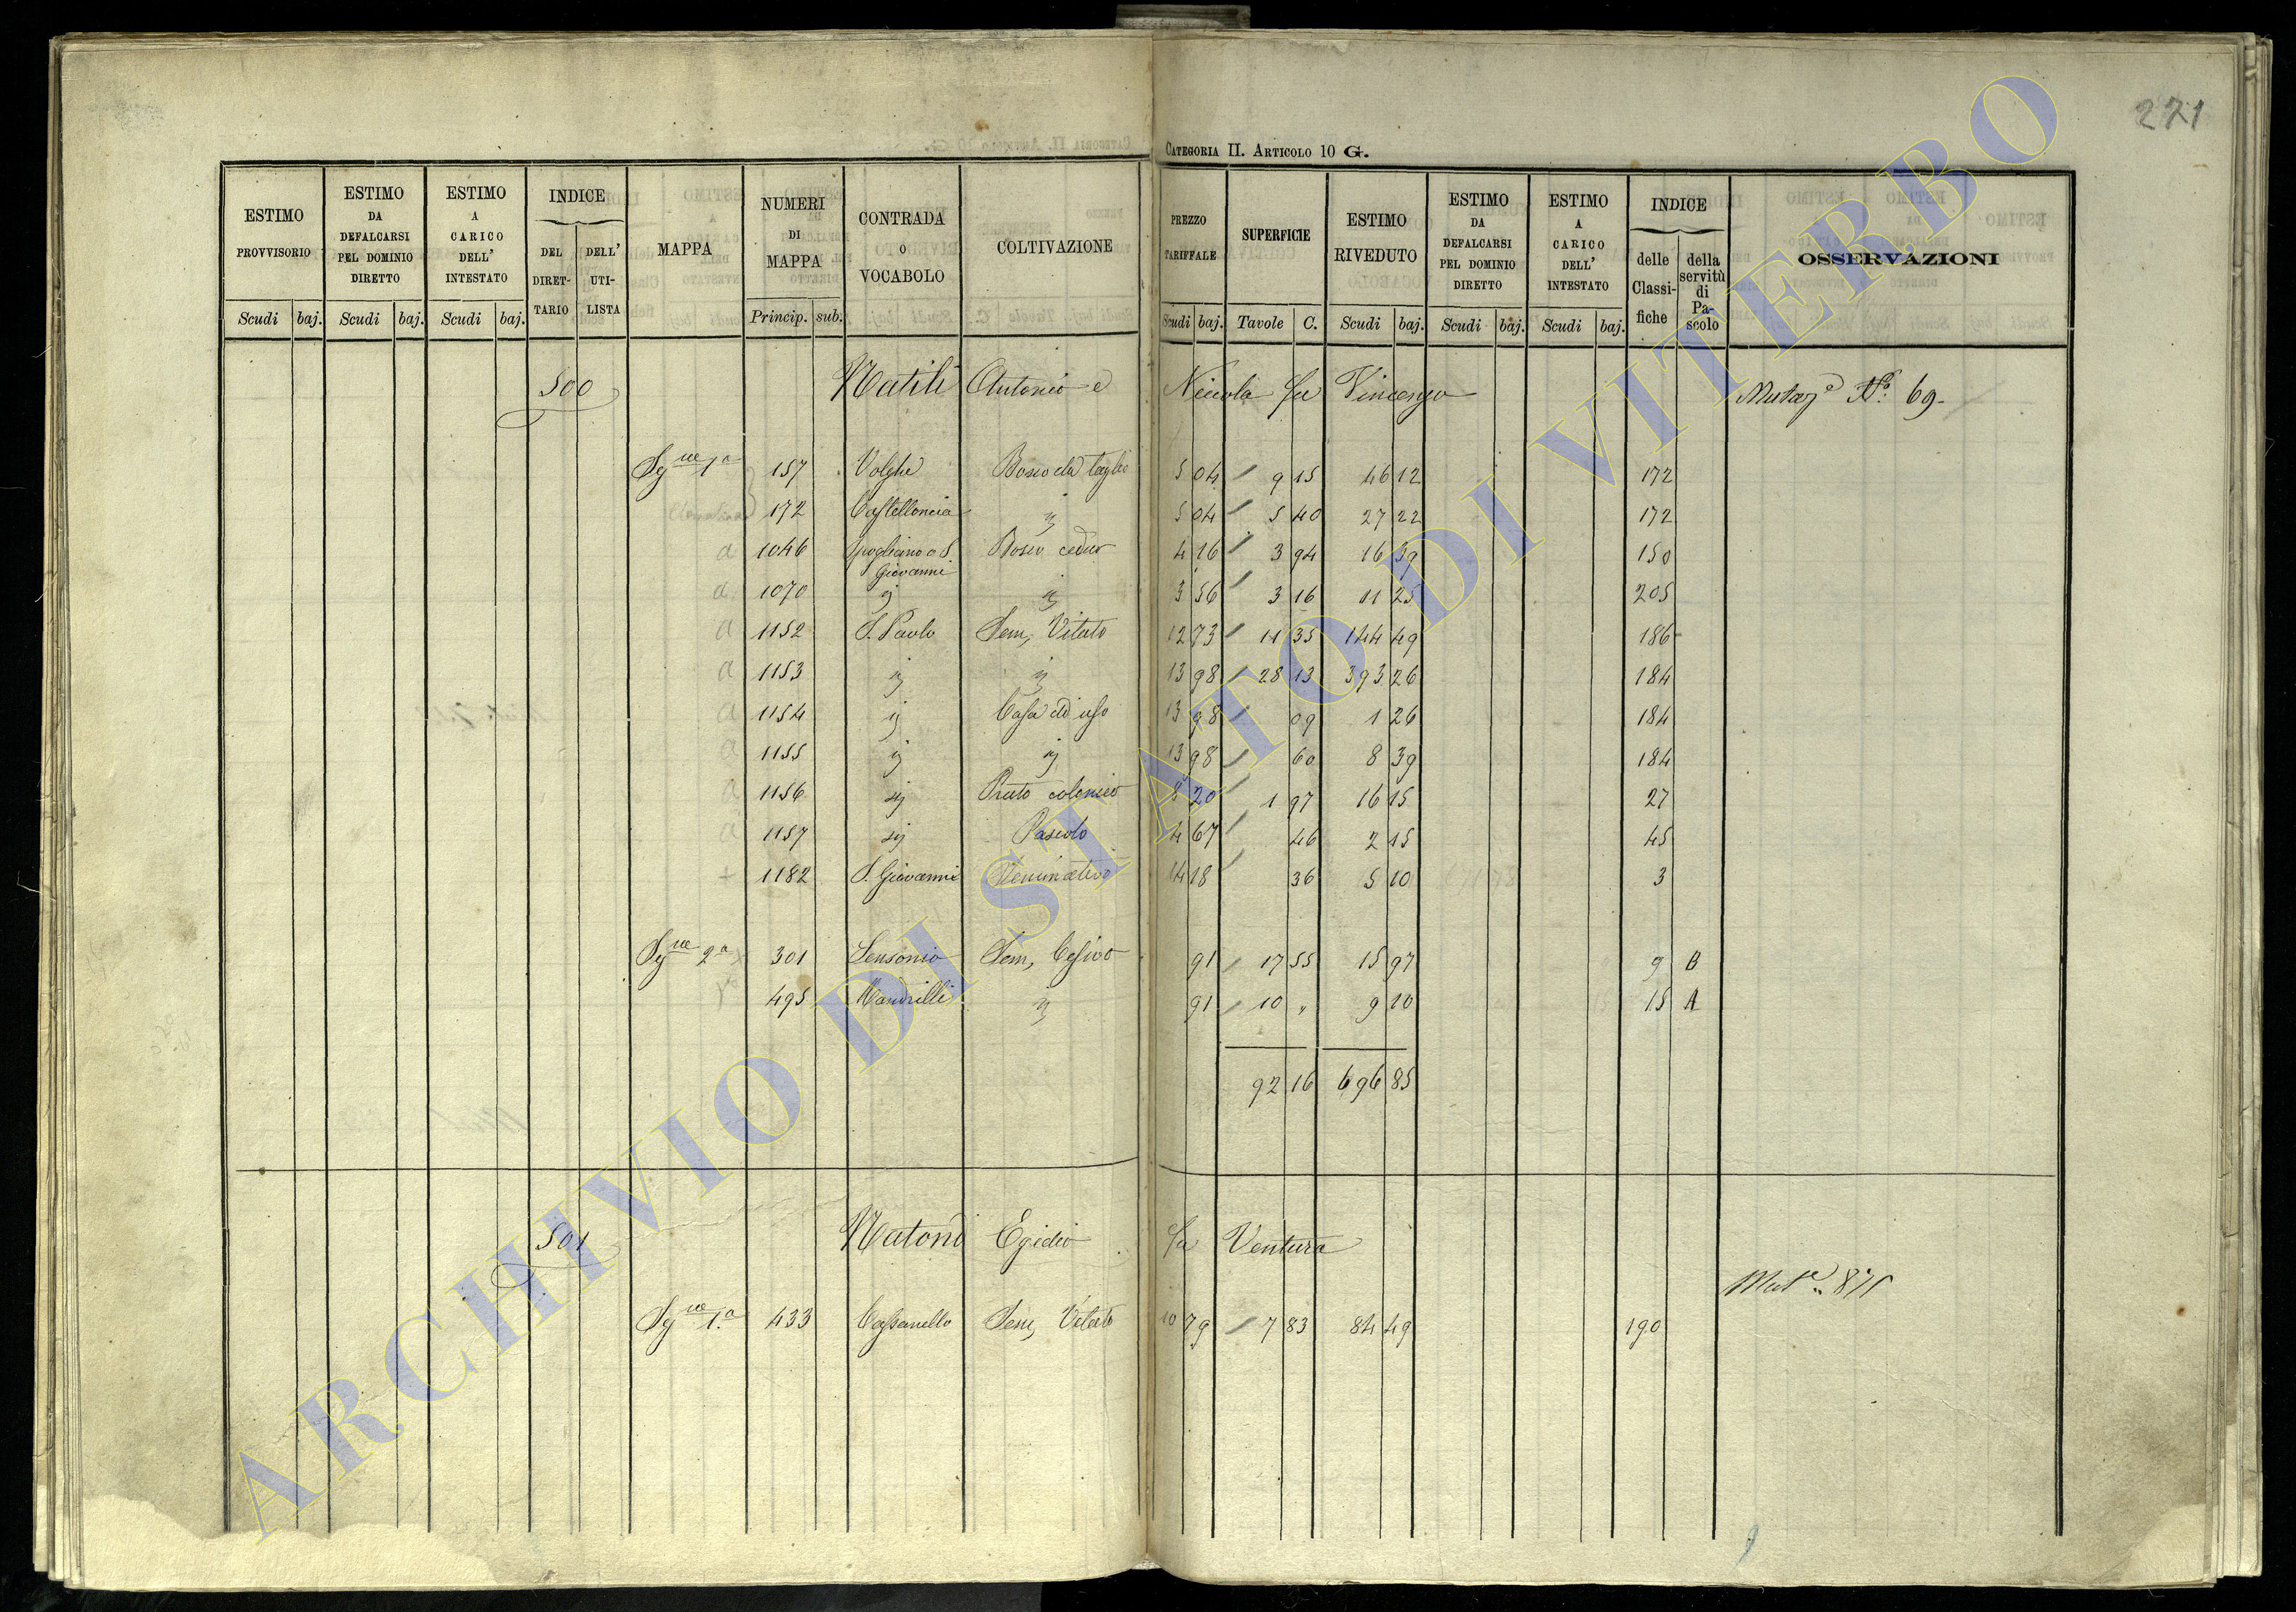 271
CATEGORIA II. ARTICOLO 10 G.
ESTIMO PROVVISORIO Scudi baj.
ESTIMO DA DEFALCARSI PEL DOMINIO DIRETTO Scudi baj.
ESTIMO A CARICO DELL' INTESTATO Scudi baj.
INDICE DEL DIRET-TARIO DELL' UTI-LISTA
MAPPA
NUMERI DI MAPPA Princip. sub.
CONTRADA O VOCABOLO
COLTIVAZIONE
PREZZO TARIFFALE Scudi baj.
SUPERFICIE Tavole C.
ESTIMO RIVEDUTO Scudi baj.
ESTIMO DA DEFALCARSI PEL DOMINIO DIRETTO Scudi baj.
ESTIMO A CARICO DELL' INTESTATO Scudi baj.
INDICE delle Classi-fiche della servitù di Pa-scolo
OSSERVAZIONI
500 Natili Antonio e Niccola fu Vincenzo Mutaz.e N.o 69
Sq.ne 1a 157 Volghe Bosco da taglio 5 04 9 15 46 12 172
172 Castelloncia " 5 04 5 40 27 22 172
a 1046 Spogliano o S. Giovanni Bosco ceduo 4 16 3 94 16 39 150
a 1070 " " 3 56 3 16 11 25 205
a 1152 S. Paolo Sem. Vitato 12 73 11 35 144 49 186
a 1153 " " 13 98 28 13 393 26 184
a 1154 " Casa di uso 13 98 09 1 26 184
a 1155 " " 13 98 60 8 39 184
a 1156 " Prato colonico 8 20 1 97 16 15 27
a 1157 " Pascolo 4 67 46 2 15 45
+ 1182 S. Giovanni Seminativo 14 18 36 5 10 3
Sq.ne 2a 301 Sensonio Sem. Cesivo 91 17 55 15 97 9 B
495 Mandrilli " 91 10 " 9 10 15 A
92 16 696 85
501 Natoni Egidio fu Ventura
Mut.e 871
Sq.ne 1.a 433 Cassanello Sem. Vitato 10 79 7 83 84 49 190
ARCHIVIO DI STATO DI VITERBO